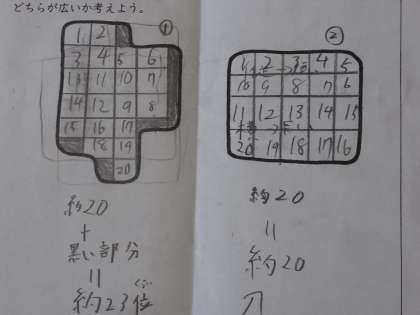 どちらが広いか考えよう。
①
1 2
3 4 5 6
13 11 10 7
14 12 9 8
15 16 17
18 19
20
約20
+
黒い部分
=
約23位
ぐらい
②
1 2 3 4 5
10 9 8 7 6
11 12 13 14 15
20 19 18 17 16
約20
=
約20